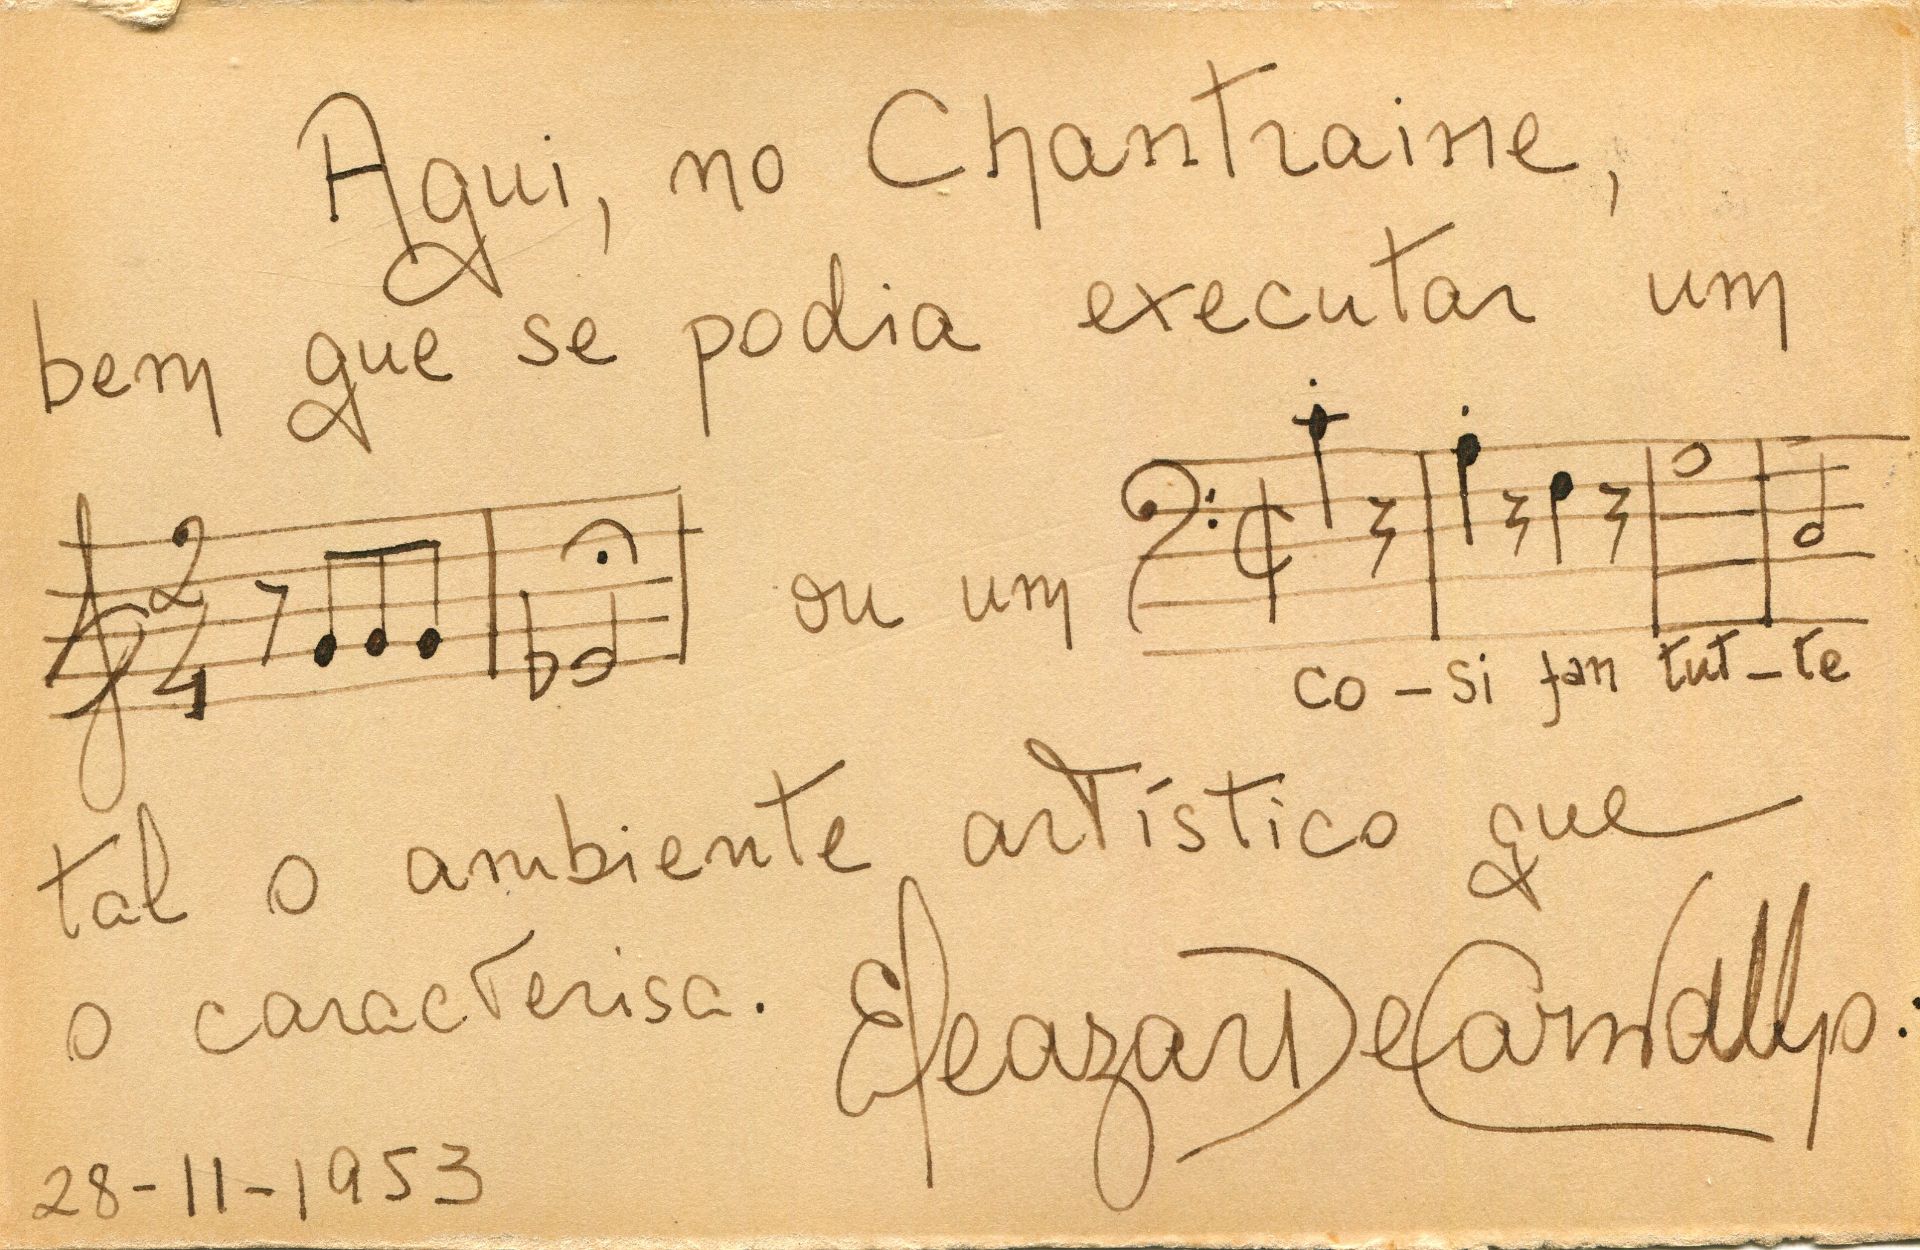 Aqui, no Chantraine,
bem que se podia executar um
2/4 ou um
co-si fan tut-te
tal o ambiente artístico que
o caracterisa. Eleazar De Carvalho.
28-11-1953